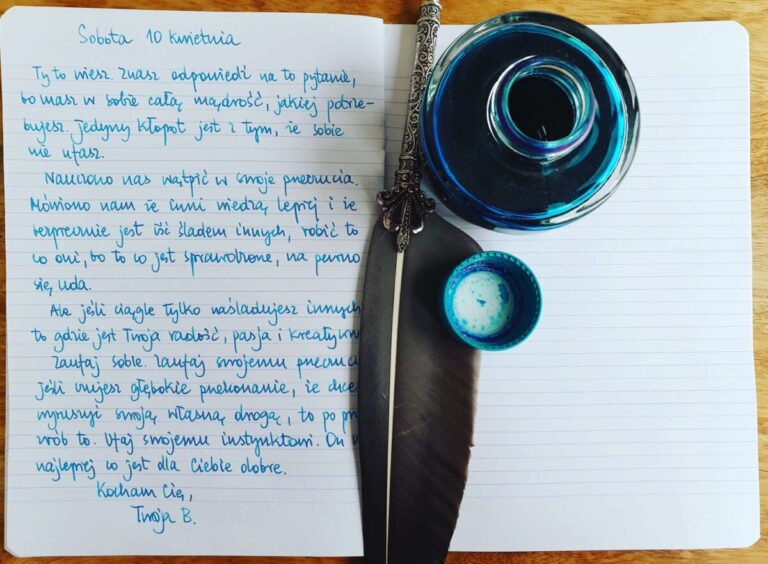 Sobota 10 kwietnia
Ty to wiesz. Znasz odpowiedź na to pytanie,
bo masz w sobie całą mądrość, jakiej potrze-
bujesz. Jedyny kłopot jest z tym, że sobie
nie ufasz.
Nauczono nas wątpić w swoje przeczucia.
Mówiono nam że inni wiedzą lepiej i że
bezpiecznie jest iść śladem innych, robić to
co oni, bo to co jest sprawdzone, na pewno
się uda.
Ale jeśli ciągle tylko naśladujesz innych
to gdzie jest Twoja radość, pasja i kreatywn
Zaufaj sobie. Zaufaj swojemu przeczuci
jeśli czujesz głębokie przekonanie, że chce
wyruszyć swoją własną drogą, to po pr
zrób to. Ufaj swojemu instynktowi. On w
najlepiej co jest dla Ciebie dobre.
Kocham Cię,
Twoja B.